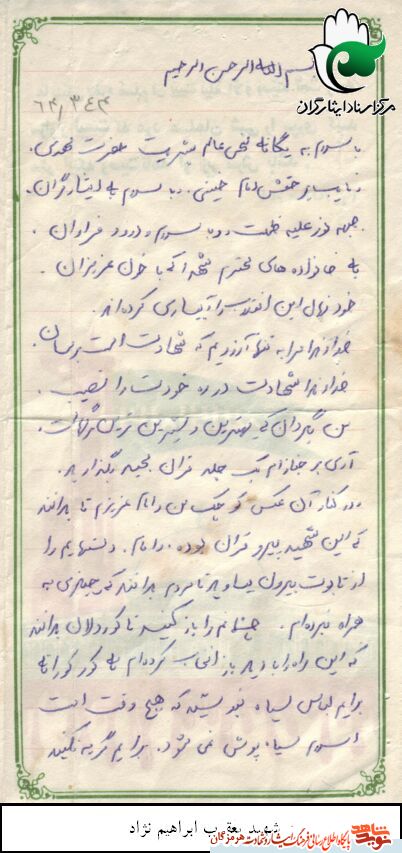 مرکز اسناد ایثارگران
بسم الله الرحمن الرحیم
۶۴/۳۴۴
با سلام به یگانه منجی عالم بشریت حضرت مهدی.
و نایب بر حقش امام خمینی. و با سلام به ایثارگران.
جبهه نور علیه ظلمت و با سلام و درود فراوان.
به خانواده های محترم شهدا که با خون عزیزان.
خود نهال این انقلاب را آبیاری کرده اند.
خدایا مرا به تنها آرزویم که شهادت است برسان.
خدایا شهادت در ره خودت را نصیب.
من بگردان که بهترین و شیرین ترین مرگهاست.
آری بر جنازه ام یک جلد قرآن مجید بگذارید.
و در کنار آن عکس کوچک من و امام عزیزم تا بدانند
که این شهید پیرو قرآن بوده و امام. دستهایم را
از تابوت بیرون بیاورید تا مردم بدانند که چیزی به
همراه نبرده ام. چشمانم را باز کنید تا کوردلان بدانند
که این راه را با دید باز انتخاب کرده ام نه کور کورانه
برایم لباس سیاه نپوشید که هیچ وقت امت
اسلام سیاه پوش نمی شود. برایم گریه نکنید
شهید یعقوب ابراهیم نژاد
نوید شاهد
پایگاه اطلاع رسانی فرهنگ ایثار و شهادت هرمزگان